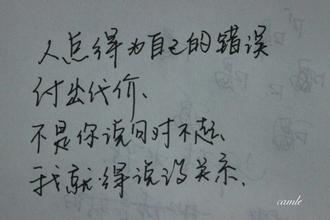 人总得为自己的错误
付出代价、
不是你说句对不起、
我就得说没关系、
camle